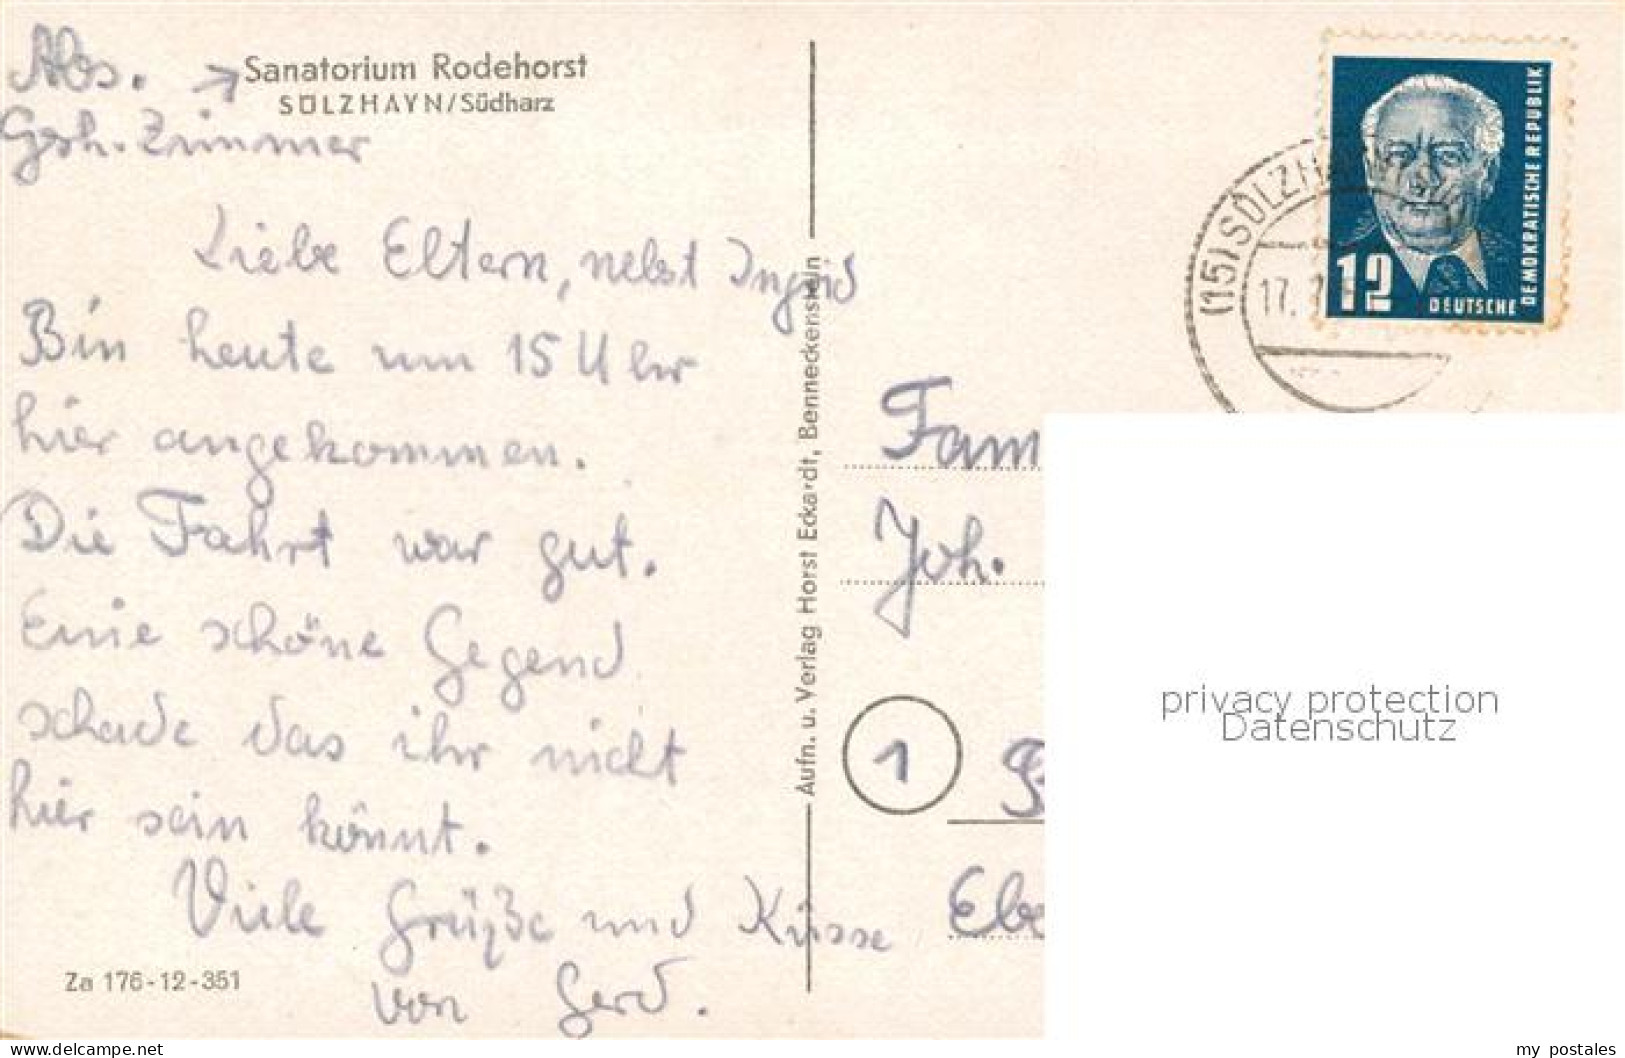 Abs.
Gerh. Zimmer
Sanatorium Rodehorst
SÜLZHAYN/Südharz
Liebe Eltern, nebst Ingrid
Bin heute um 15 Uhr
hier angekommen.
Die Fahrt war gut.
Eine schöne Gegend
schade das ihr nicht
hier sein könnt.
Viele Grüße und Küsse
von Gerd.
Za 176-12-351
Aufn. u. Verlag Horst Eckardt, Benneckenstein
(15) SÜLZHAYN
17.
12
DEUTSCHE
DEMOKRATISCHE REPUBLIK
Fam
Joh.
1
B
Ebe
privacy protection
Datenschutz
www.delcampe.net
my_postales